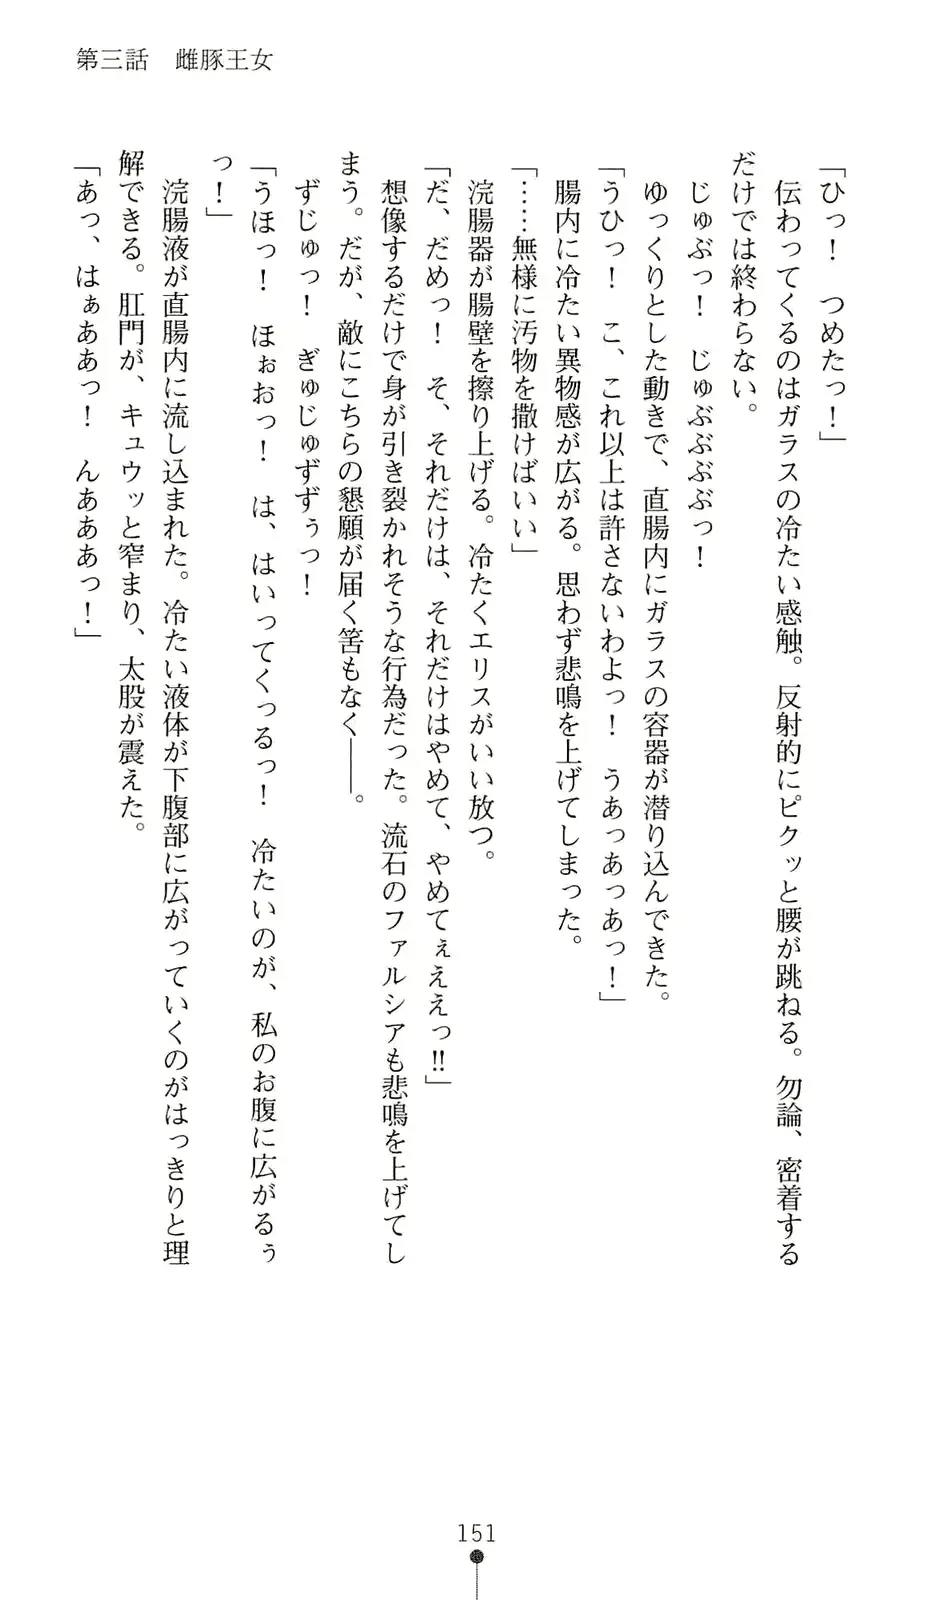 第三話　雌豚王女
「ひっ！　つめたっ！」
　伝わってくるのはガラスの冷たい感触。反射的にピクッと腰が跳ねる。勿論、密着する
だけでは終わらない。
　じゅぶっ！　じゅぶぶぶぶっ！
　ゆっくりとした動きで、直腸内にガラスの容器が潜り込んできた。
「うひっ！　こ、これ以上は許さないわよっ！　うあっあっあっ！」
　腸内に冷たい異物感が広がる。思わず悲鳴を上げてしまった。
「……無様に汚物を撒けばいい」
　浣腸器が腸壁を擦り上げる。冷たくエリスがいい放つ。
「だ、だめっ！　そ、それだけは、それだけはやめて、やめてぇええっ!!」
　想像するだけで身が引き裂かれそうな行為だった。流石のファルシアも悲鳴を上げてし
まう。だが、敵にこちらの懇願が届く筈もなく――。
　ずじゅっ！　ぎゅじゅずずぅっ！
「うほっ！　ほぉおっ！　は、はいってくっるっ！　冷たいのが、私のお腹に広がるぅ
っ！」
　浣腸液が直腸内に流し込まれた。冷たい液体が下腹部に広がっていくのがはっきりと理
解できる。肛門が、キュウッと窄まり、太股が震えた。
「あっ、はぁああっ！　んあああっ！」
151